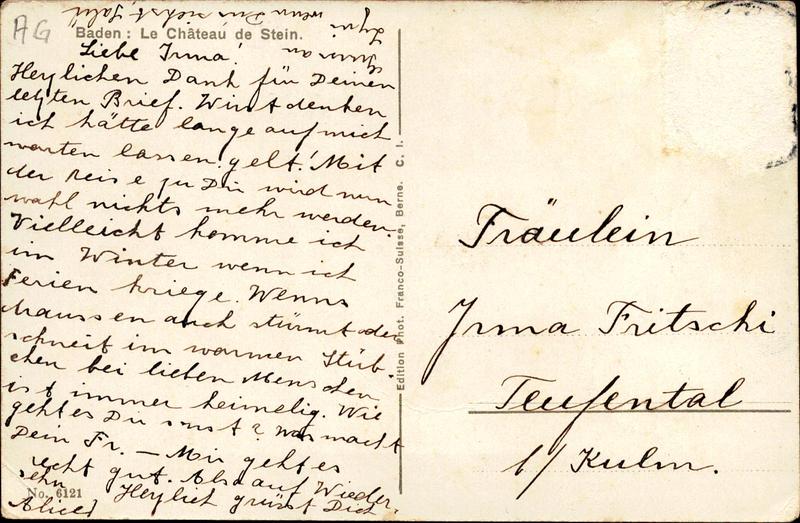 AG
Baden : Le Château de Stein.
Liebe Irma!
Herzlichen Dank für Deinen
letzten Brief. Wirst denken
ich hätte lange auf mich
warten lassen. gelt! Mit
der Reise zu Dir wird nun
wohl nichts mehr werden.
Vielleicht komme ich
im Winter wenn ich
Ferien kriege. Wenns
draussen auch stürmt oder
schneit im warmen Stüb-
chen bei lieben Menschen
ist immer heimelig. Wie
geht es Dir sonst? Was macht
Dein Fr. — Mir geht es
recht gut. Also auf Wieder-
sehn Herzlich grüsst Dich
Alice
No. 6121
wenn Du siehst
Edition Phot. Franco-Suisse, Berne. C. I.
Fräulein
Irma Fritschi
Teufental
b/ Kulm.